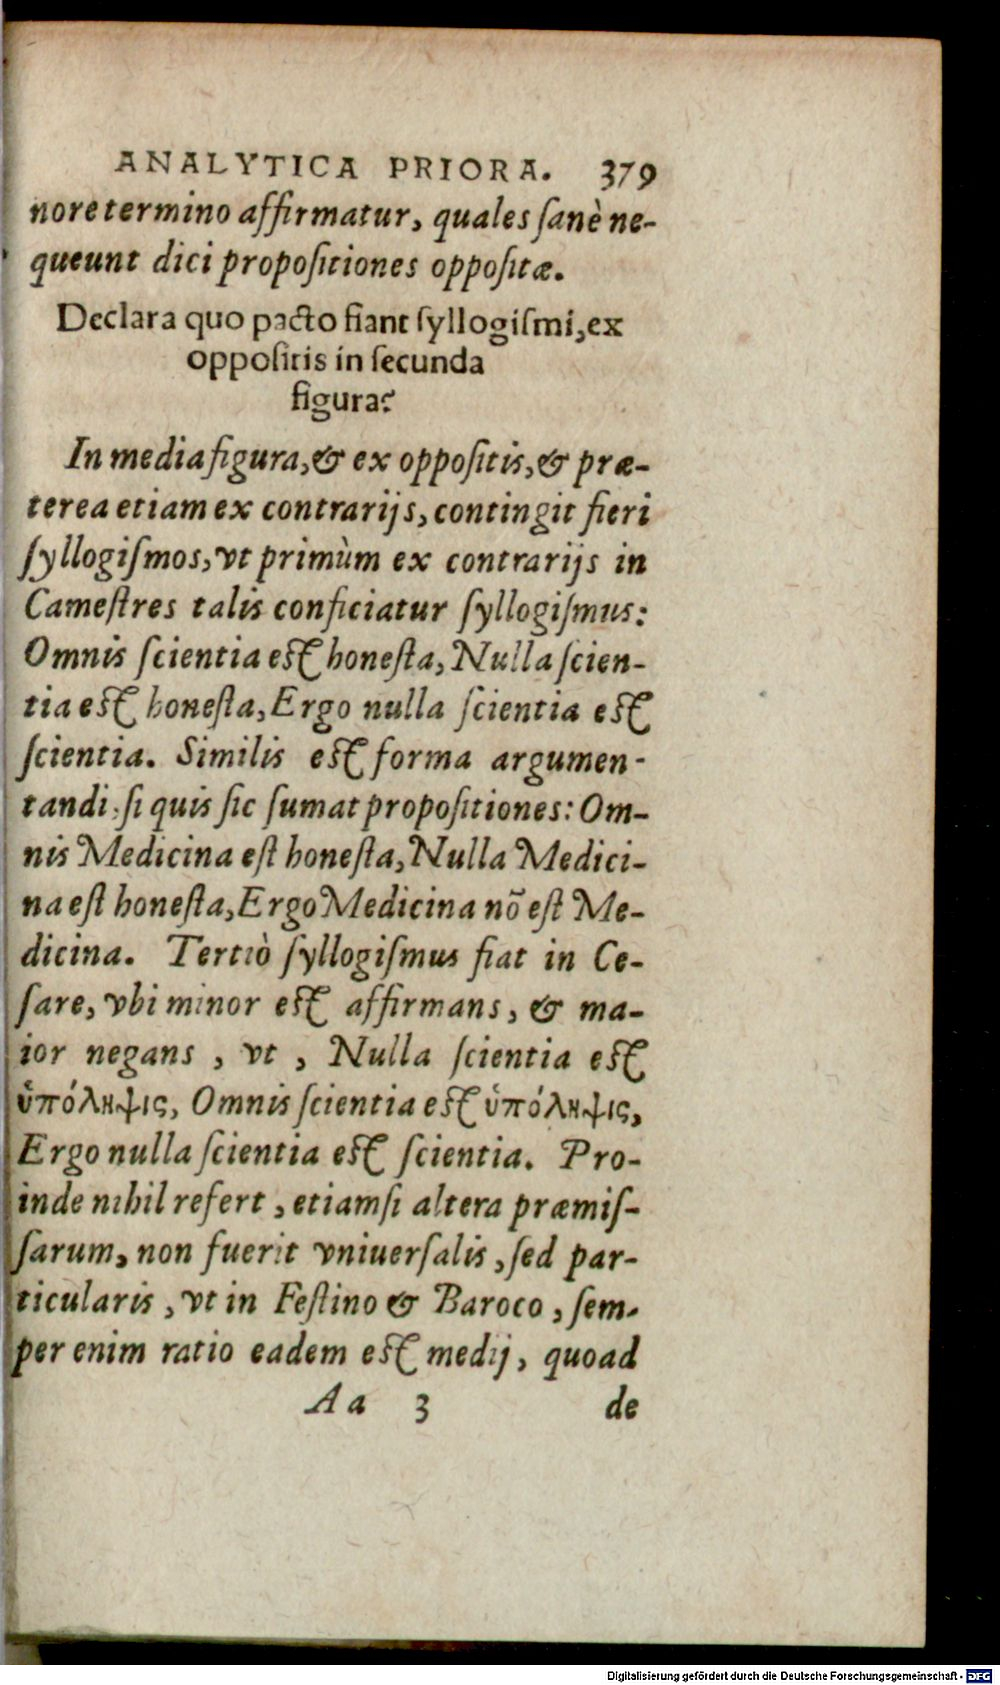 ANALYTICA PRIORA. 379
nore termino affirmatur, quales ſanè ne-
queunt dici propoſitiones oppoſitæ.
Declara quo pacto fiant ſyllogiſmi, ex
oppoſitis in ſecunda
figura?
In media figura, & ex oppoſitis, & præ-
terea etiam ex contrarijs, contingit fieri
ſyllogiſmos, vt primùm ex contrarijs in
Cameſtres talis conficiatur ſyllogiſmus:
Omnis ſcientia eſt honeſta, Nulla ſcien-
tia eſt honeſta, Ergo nulla ſcientia eſt
ſcientia. Similis eſt forma argumen-
tandi, ſi quis ſic ſumat propoſitiones: Om-
nis Medicina eſt honeſta, Nulla Medici-
na eſt honeſta, Ergo Medicina nō eſt Me-
dicina. Tertiò ſyllogiſmus fiat in Ce-
ſare, vbi minor eſt affirmans, & ma-
ior negans, vt, Nulla ſcientia eſt
ὑπόληψις, Omnis ſcientia eſt ὑπόληψις,
Ergo nulla ſcientia eſt ſcientia. Pro-
inde nihil refert, etiamſi altera præmiſ-
ſarum, non fuerit vniuerſalis, ſed par-
ticularis, vt in Feſtino & Baroco, ſem-
per enim ratio eadem eſt medij, quoad
Aa 3 de
Digitalisierung gefördert durch die Deutsche Forschungsgemeinschaft - DFG